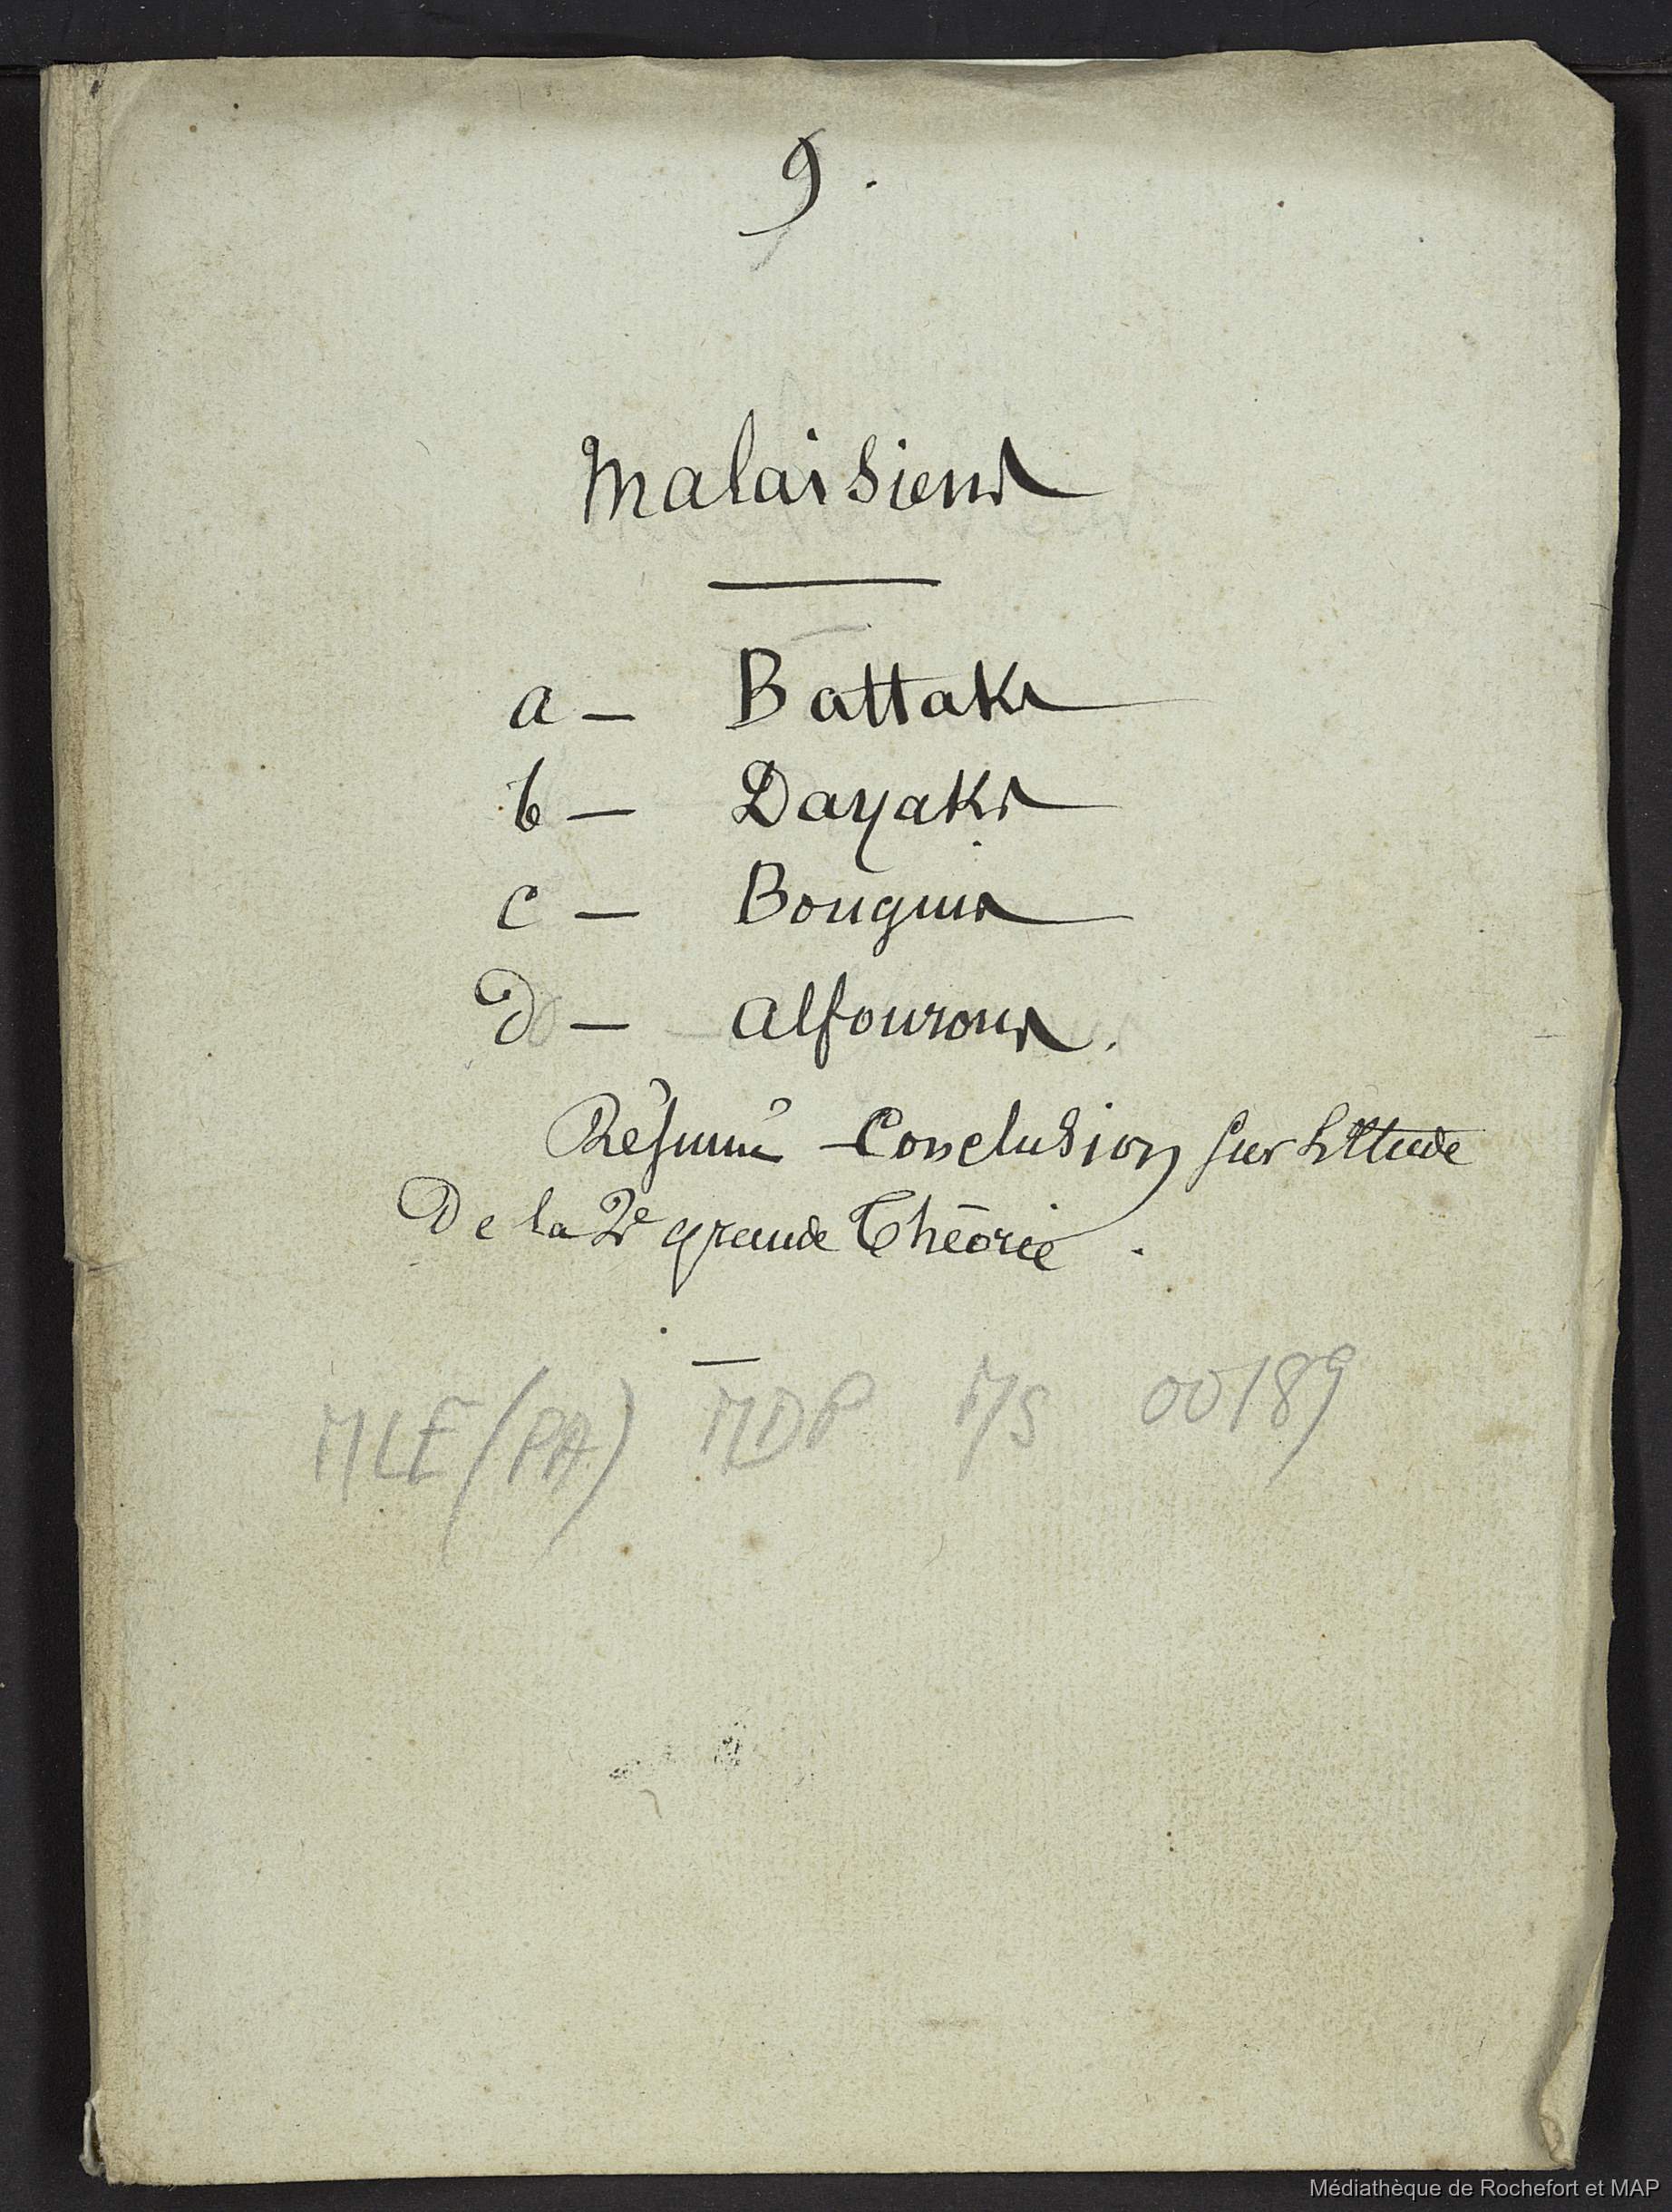 9.
Malaisiens
a — Battaks
b — Dayaks
c — Bouguis
d — Alfourous.
Résumé - Conclusion sur l'Etude
De la 2e grande Théorie.
MLE (PA) MDP MS 00189
Médiathèque de Rochefort et MAP